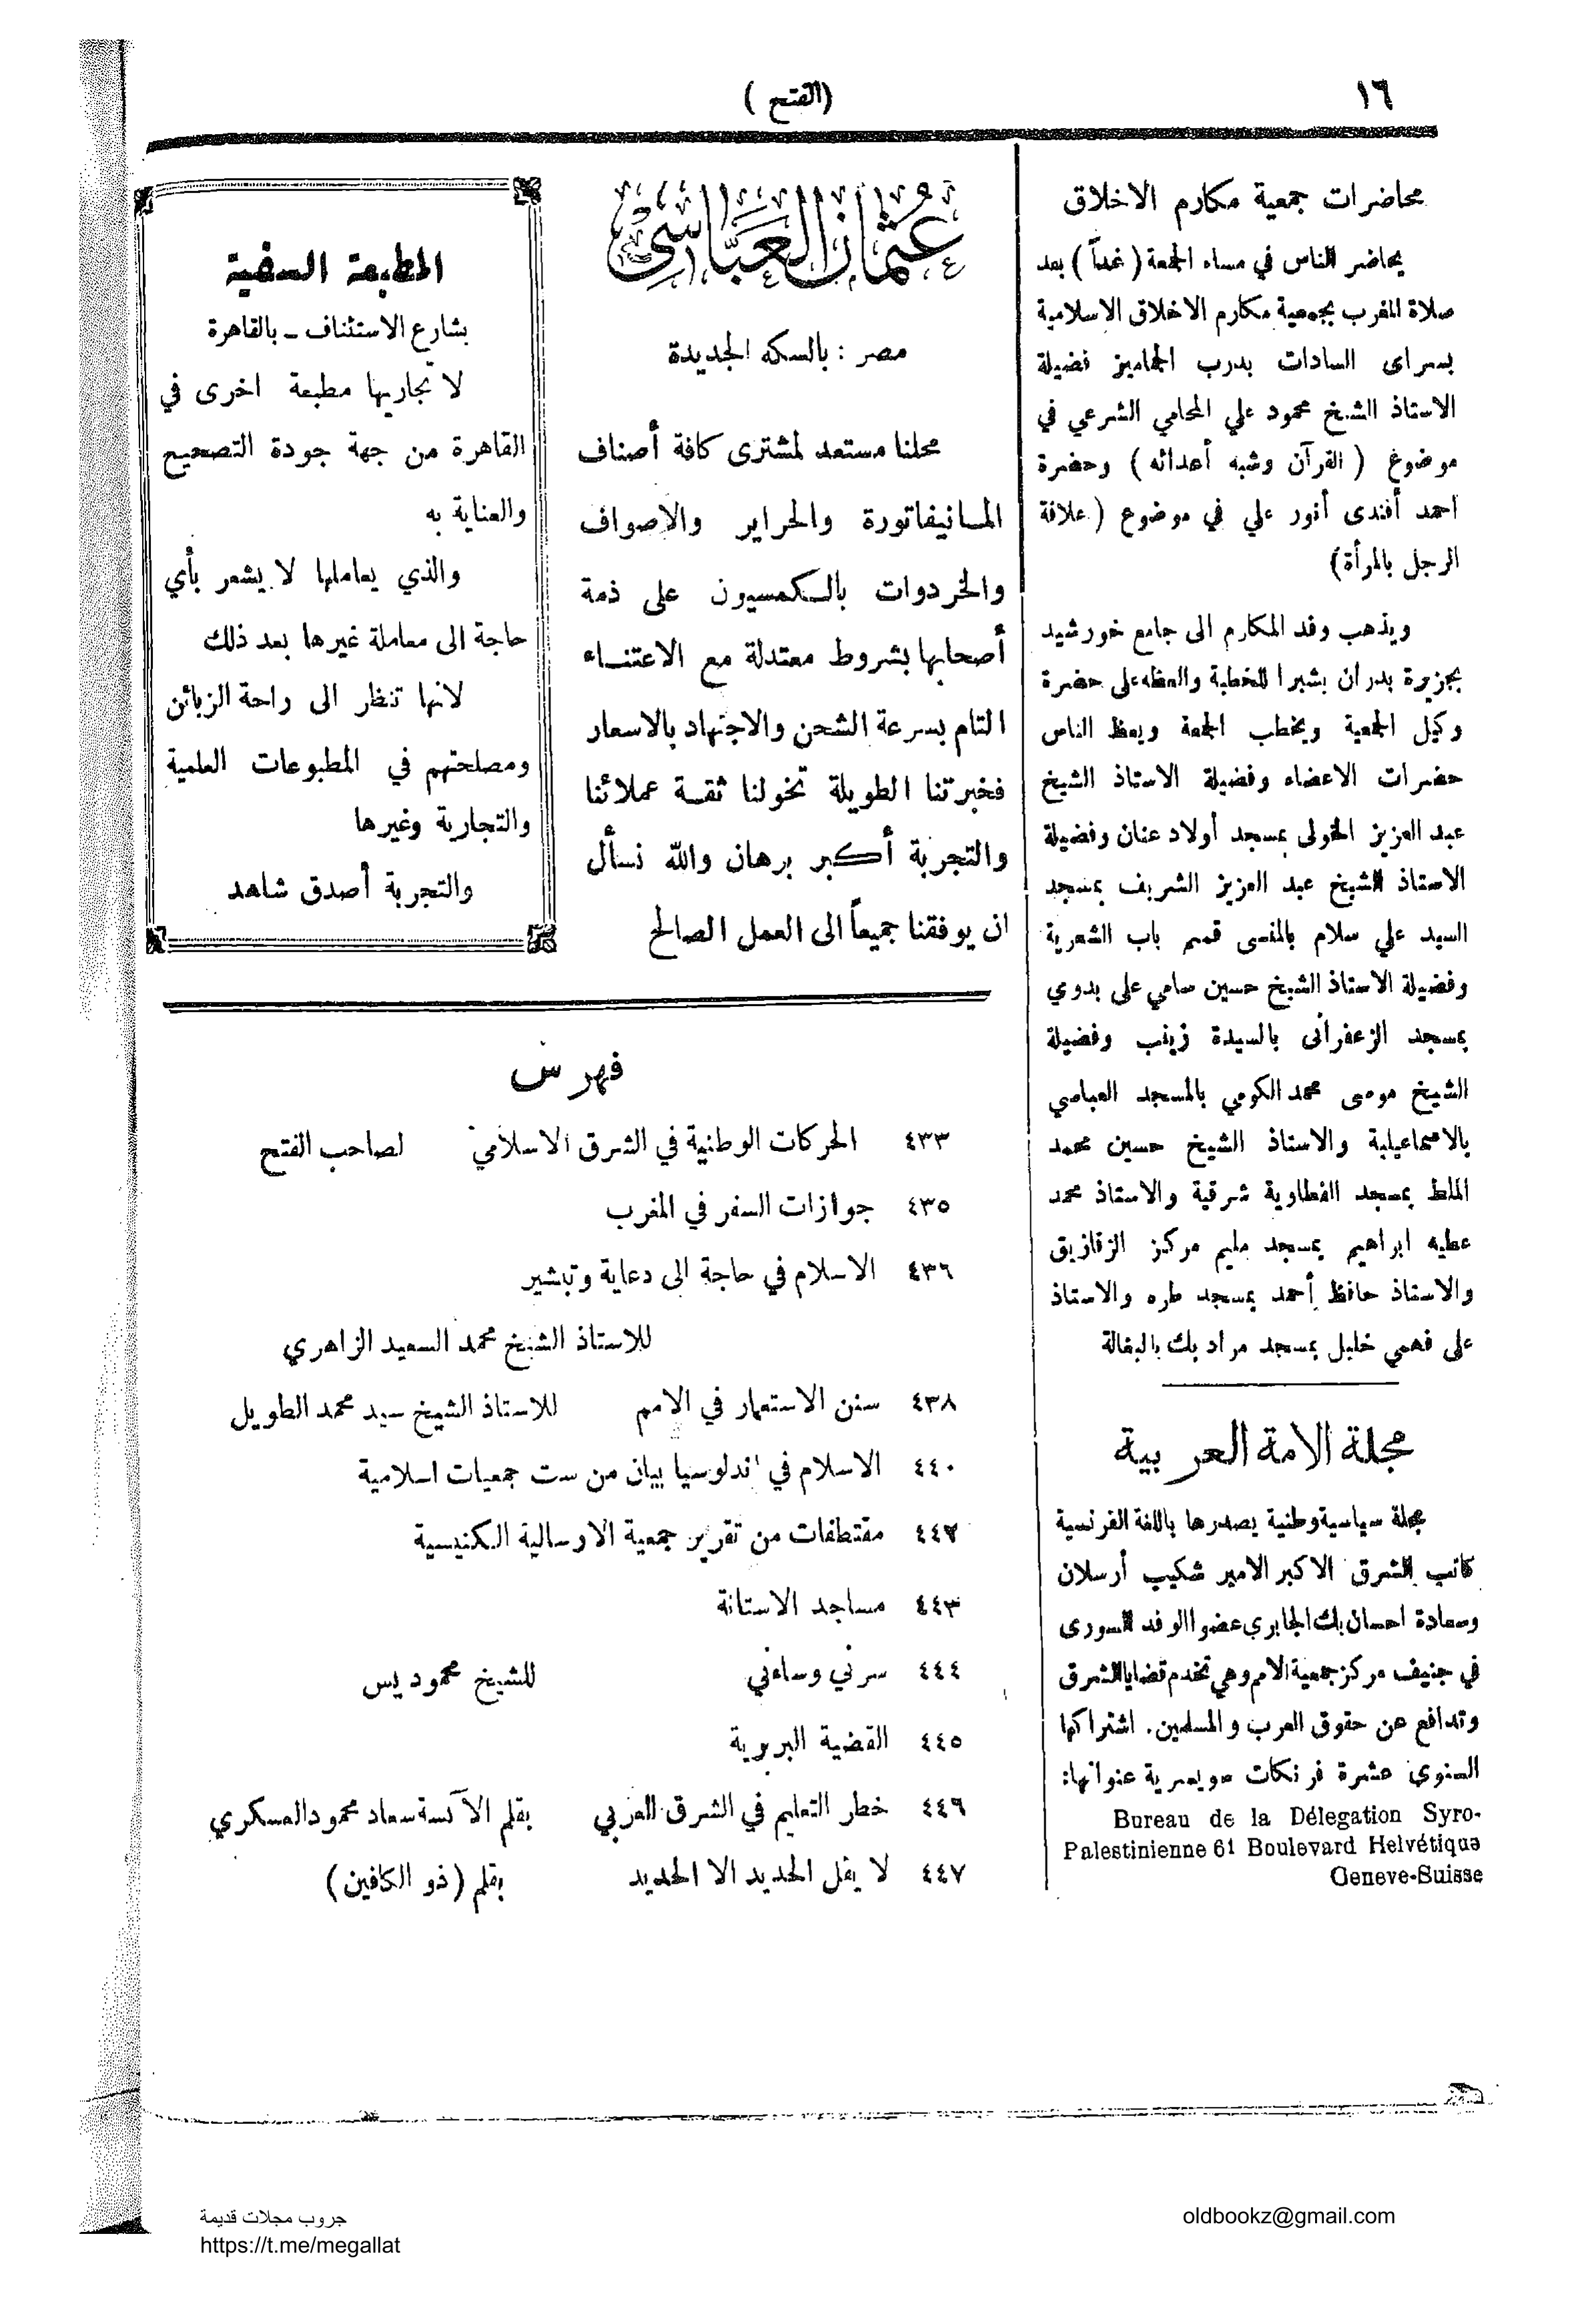 ١٦
(الفتح)
محاضرات جمعية مكارم الاخلاق
يحاضر الناس في مساء الجمعة (غداً) بعد
صلاة المغرب بجمعية مكارم الاخلاق الاسلامية
بسراى السادات بدرب الجماميز فضيلة
الاستاذ الشيخ محمود علي المحامي الشرعي في
موضوع (القرآن وشبه أعدائه) وحضرة
احمد أفندى أنور علي في موضوع (علاقة
الرجل بالمرأة)
ويذهب وفد المكارم الى جامع خورشيد
بجزيرة بدران بشبرا للخطبة والعظه على حضرة
وكيل الجمعية ويخطب الجمعة ويعظ الناس
حضرات الاعضاء وفضيلة الاستاذ الشيخ
عبد العزيز الخولى بمسجد أولاد عنان وفضيلة
الاستاذ الشيخ عبد العزيز الشريف بمسجد
السيد علي سلام بالمقسى قسم باب الشعرية
وفضيلة الاستاذ الشيخ حسين سامي على بدوي
بمسجد الزعفرانى بالسيدة زينب وفضيلة
الشيخ موسى محمد الكومي بالمسجد العباسي
بالاسماعيلية والاستاذ الشيخ حسين محمد
الملط بمسجد القطاوية شرقية والاستاذ محمد
عطيه ابراهيم بمسجد مليم مركز الزقازيق
والاستاذ حافظ أحمد بمسجد طره والاستاذ
على فهمي خليل بمسجد مراد بك بالبغالة
مجلة الامة العربية
مجلة سياسية وطنية يصدرها باللغة الفرنسية
كاتب الشرق الاكبر الامير شكيب أرسلان
وسعادة احسان بك الجابري عضوا الوفد السورى
في جنيف مركز جمعية الامم وهي تخدم قضايا الشرق
وتدافع عن حقوق العرب والمسلمين. اشتراكها
السنوي عشرة فرنكات سويسرية عنوانها:
Bureau de la Délegation Syro-
Palestinienne 61 Boulevard Helvétique
Geneve-Suisse
عثمان العباسي
مصر : بالسكه الجديدة
محلنا مستعد لمشترى كافة أصناف
المانيفاتورة والحراير والاصواف
والخردوات بالكمسيون على ذمة
أصحابها بشروط معتدلة مع الاعتناء
التام بسرعة الشحن والاجتهاد بالاسعار
فخبرتنا الطويلة تخولنا ثقة عملائنا
والتجربة أكبر برهان والله نسأل
ان يوفقنا جميعاً الى العمل الصالح
المطبعة السلفية
بشارع الاستئناف ـ بالقاهرة
لا تجاريها مطبعة اخرى في
القاهرة من جهة جودة التصحيح
والعناية به
والذي يعاملها لا يشعر بأي
حاجة الى معاملة غيرها بعد ذلك
لانها تنظر الى راحة الزبائن
ومصلحتهم في المطبوعات العلمية
والتجارية وغيرها
والتجربة أصدق شاهد
فهرس
٤٣٣ الحركات الوطنية في الشرق الاسلامي لصاحب الفتح
٤٣٥ جوازات السفر في المغرب
٤٣٦ الاسلام في حاجة الى دعاية وتبشير
للاستاذ الشيخ محمد السعيد الزاهري
٤٣٨ سنن الاستعمار في الامم للاستاذ الشيخ سيد محمد الطويل
٤٤٠ الاسلام في اندلوسيا بيان من ست جمعيات اسلامية
٤٤٢ مقتطفات من تقرير جمعية الارسالية الكنيسية
٤٤٣ مساجد الاستانة
٤٤٤ سرني وساءني للشيخ محمود يس
٤٤٥ القضية البربرية
٤٤٦ خطر التعليم في الشرق العربي بقلم الآنسة سعاد محمود العسكري
٤٤٧ لا يفل الحديد الا الحديد بقلم (ذو الكافين)
جروب مجلات قديمة
https://t.me/megallat
oldbookz@gmail.com